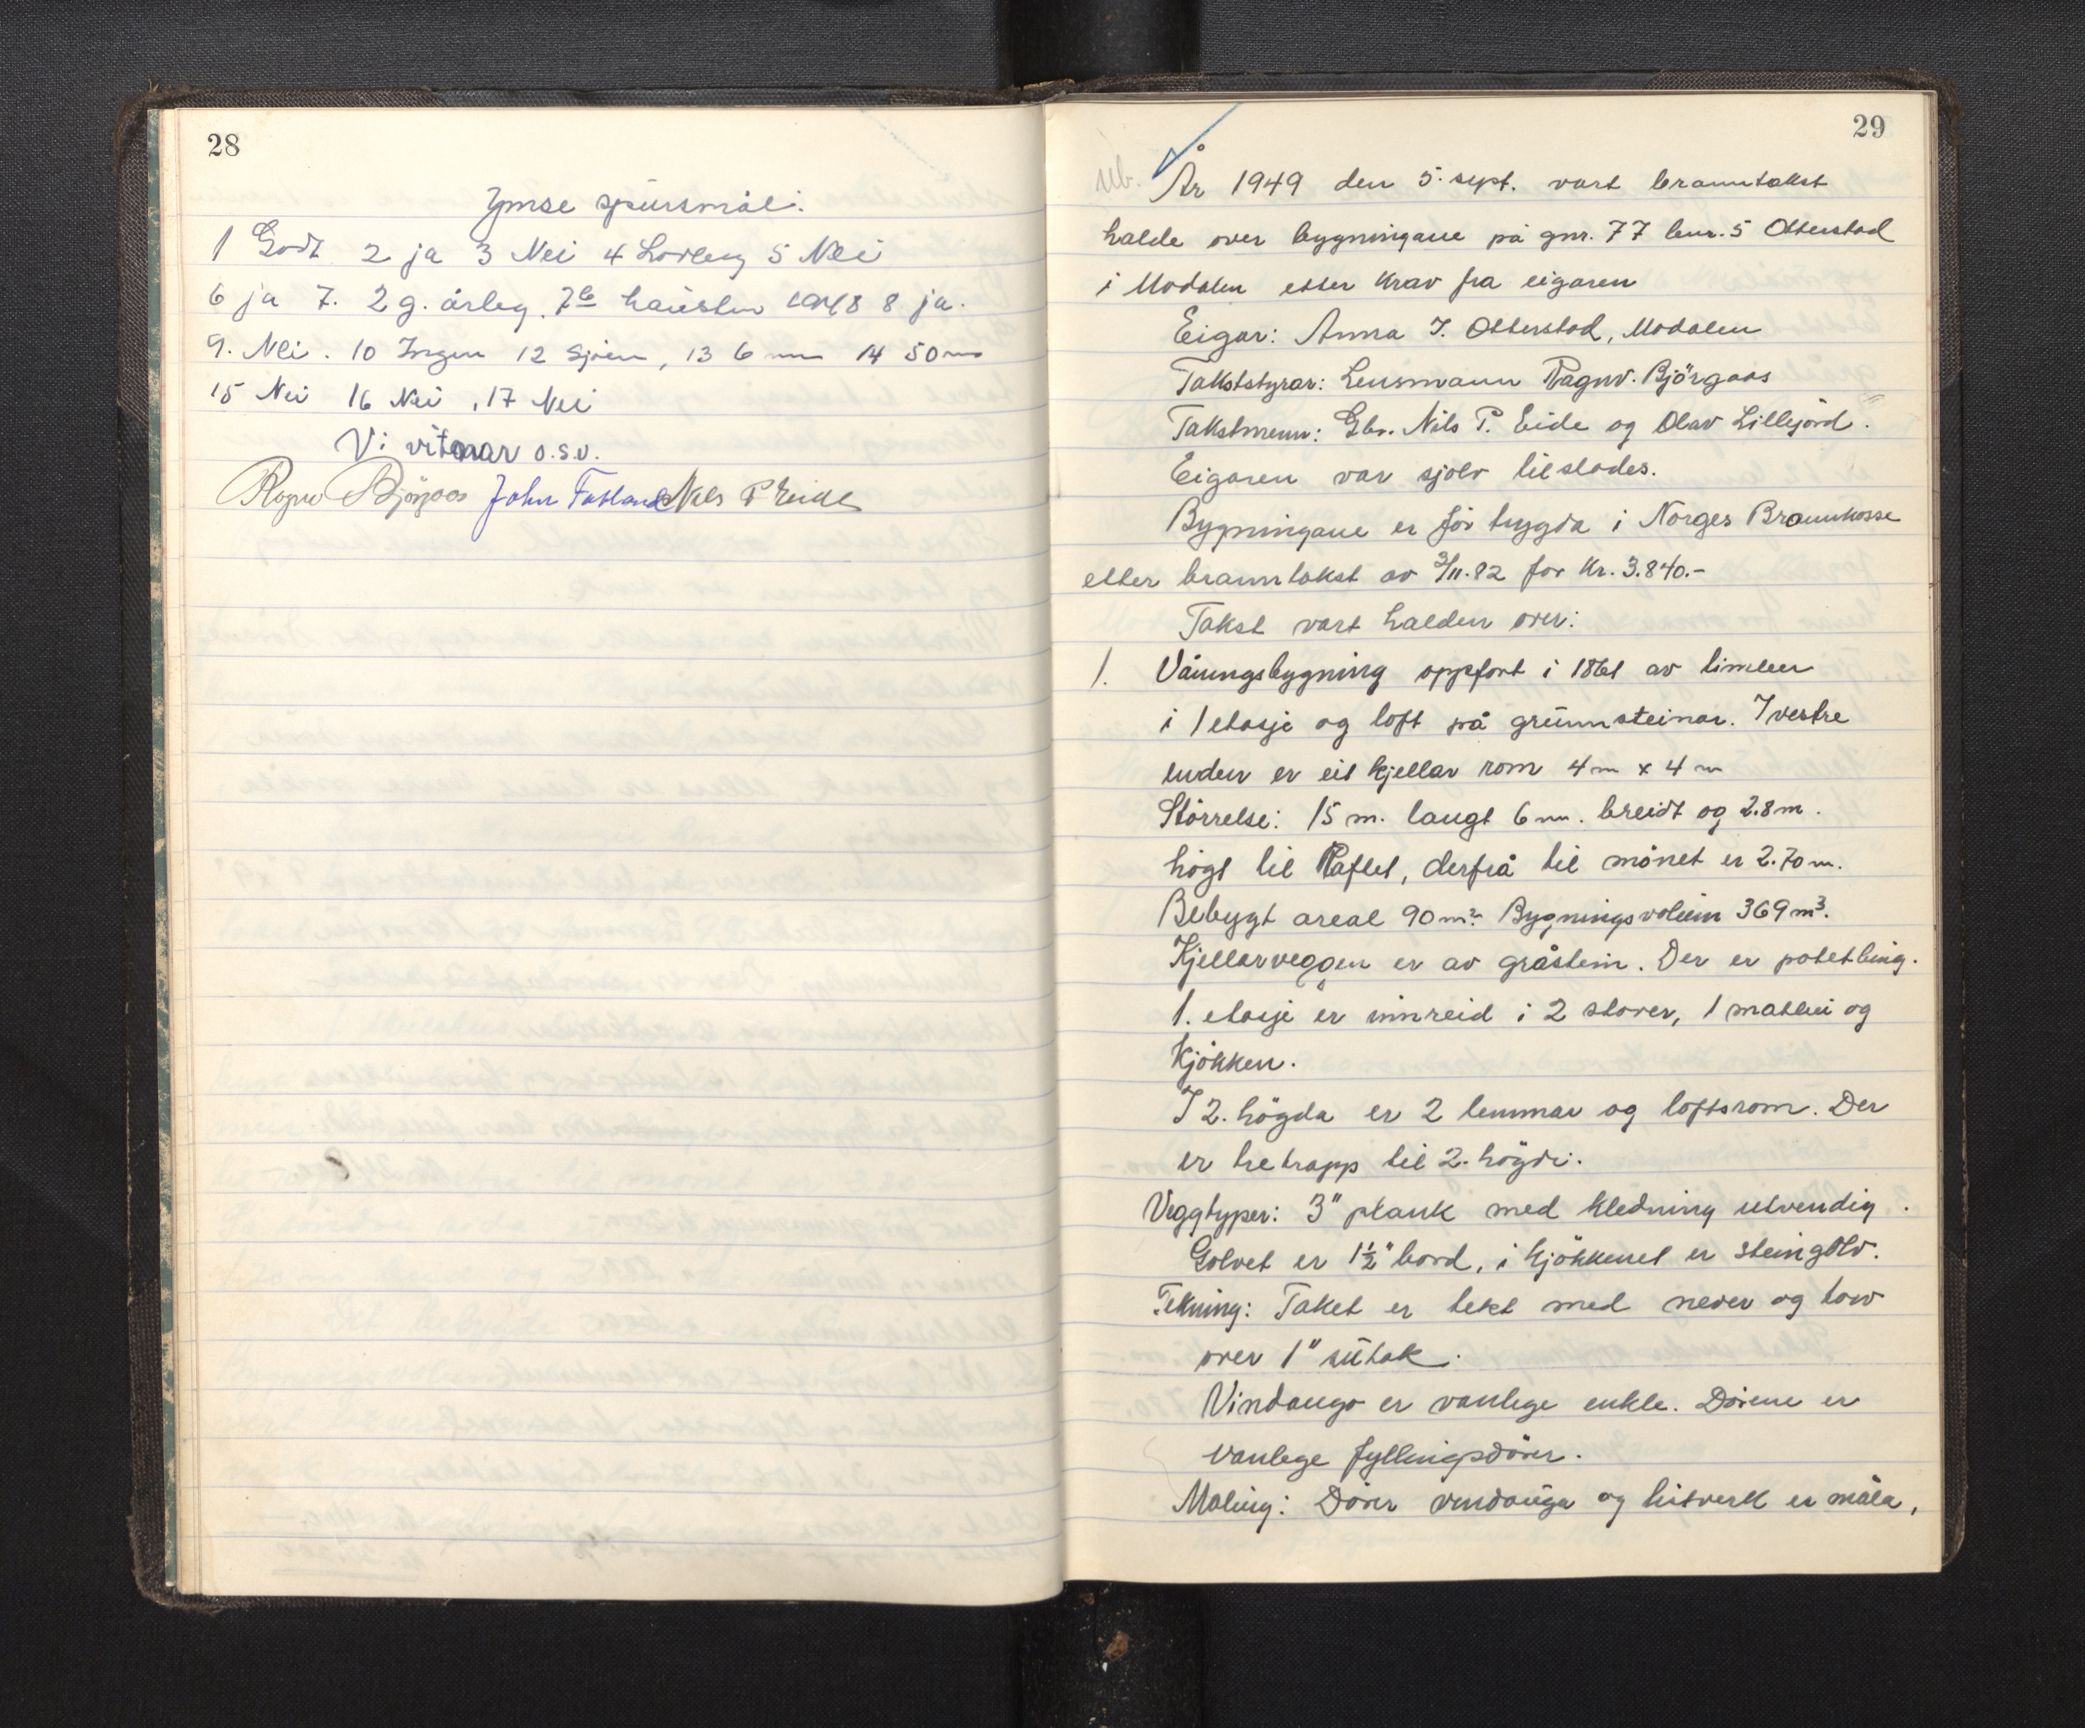 28
Ymse spursmål.
1 Godt 2 ja 3 Nei 4 Lovleg 5 Nei
6 ja 7. 2 g. årleg. 7b hausten 1948 8 ja.
9. Nei. 10 Ingen 12 Sjøen, 13 6 m 14 50 m
15 Nei 16 Nei, 17 Nei
Vi vitnar o.s.v.
Ragnv Björgaas John Fatland Nils P Eide
29
År 1949 den 5. sept. vart branntakst
halde over bygningane på gnr. 77 bnr. 5 Otterstad
i Modalen etter krav fra eigaren
Eigar: Anna I. Otterstad, Modalen
Takststyrar: Lensmann Ragnv. Björgaas
Takstmenn: Gbr. Nils P. Eide og Olav Lillejord.
Eigaren var sjølv tilstades.
Bygningane er før trygda i Norges Brannkasse
etter branntakst av 3/11.82 for kr. 3.840.-
Takst vart halden over:
1. Våningsbygning oppført i 1861 av timber
i 1 etasje og loft på grunnsteinar. I vestre
enden er eit kjellar rom 4 m x 4 m
Störrelse: 15 m. langt 6 m. breidt og 2.8 m.
högt til Raftet, derfrå til mönet er 2.70 m.
Bebygt areal 90 m². Bygningsvolum 369 m³.
Kjellarveggen er av gråstein. Der er potetbing.
1. etasje er innreid i 2 stover, 1 matbu og
kjökken.
I 2. högda er 2 lemmar og loftsrom. Der
er tretrapp til 2. högdi.
Veggtyper: 3" plank med kledning utvendig.
Golvet er 1½" bord, i kjökkenet er steingolv.
Tekning: Taket er tekt med never og torv
over 1" sutak.
Vindaugo er vanlege enkle. Dörene er
vanlege fyllingsdörer.
Maling: Dörer vindauga og listverk er måla,